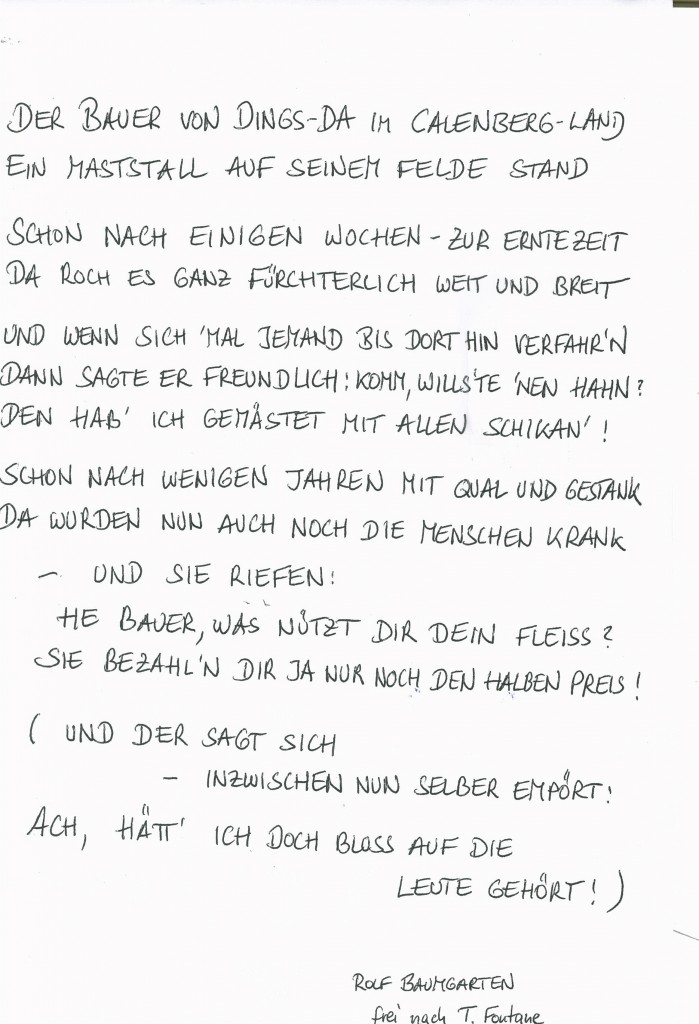 DER BAUER VON DINGS-DA IM CALENBERG-LAND
EIN MASTSTALL AUF SEINEM FELDE STAND
SCHON NACH EINIGEN WOCHEN - ZUR ERNTEZEIT
DA ROCH ES GANZ FÜRCHTERLICH WEIT UND BREIT
UND WENN SICH 'MAL JEMAND BIS DORT HIN VERFAHR'N
DANN SAGTE ER FREUNDLICH: KOMM, WILLS'TE 'NEN HAHN?
DEN HAB' ICH GEMÄSTET MIT ALLEN SCHIKAN'!
SCHON NACH WENIGEN JAHREN MIT QUAL UND GESTANK
DA WURDEN NUN AUCH NOCH DIE MENSCHEN KRANK
- UND SIE RIEFEN:
HE BAUER, WAS NÜTZT DIR DEIN FLEISS?
SIE BEZAHL'N DIR JA NUR NOCH DEN HALBEN PREIS!
( UND DER SAGT SICH
- INZWISCHEN NUN SELBER EMPÖRT!
ACH, HÄTT' ICH DOCH BLOSS AUF DIE
LEUTE GEHÖRT! )
ROLF BAUMGARTEN
frei nach T. Fontane